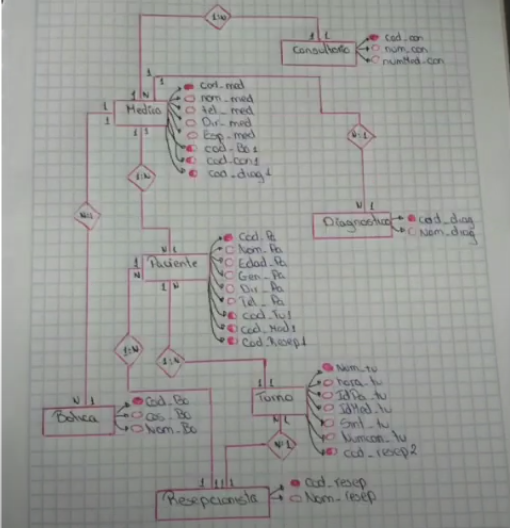 1:N
Consultorio
cod_con
num_con
numMed_con
1 1
1 N
1
Medico
cod_med
nom_med
tel_med
Dir_med
Esp_med
cod_Bo1
cod_con1
cod_diag1
1
1
1 1
N:1
N 1
Diagnostico
cod_diag
Nom_diag
1:N
N:1
N 1
Paciente
Cod_Pa
Nom_Pa
Edad_Pa
Gen_Pa
Dir_Pa
Tel_Pa
Cod_Tu1
Cod_Med1
Cod_Resep1
1
N
1 N
1:N
1:N
N 1
Botica
Cod_Bo
Cos_Bo
Nom_Bo
1 1
Turno
Nom_tu
hora_tu
IdPa_tu
IdMed_tu
Sint_tu
Numcon_tu
cod_resep2
N 1
N:1
1 1 1 1
Resepcionista
Cod_resep
Nom_resep